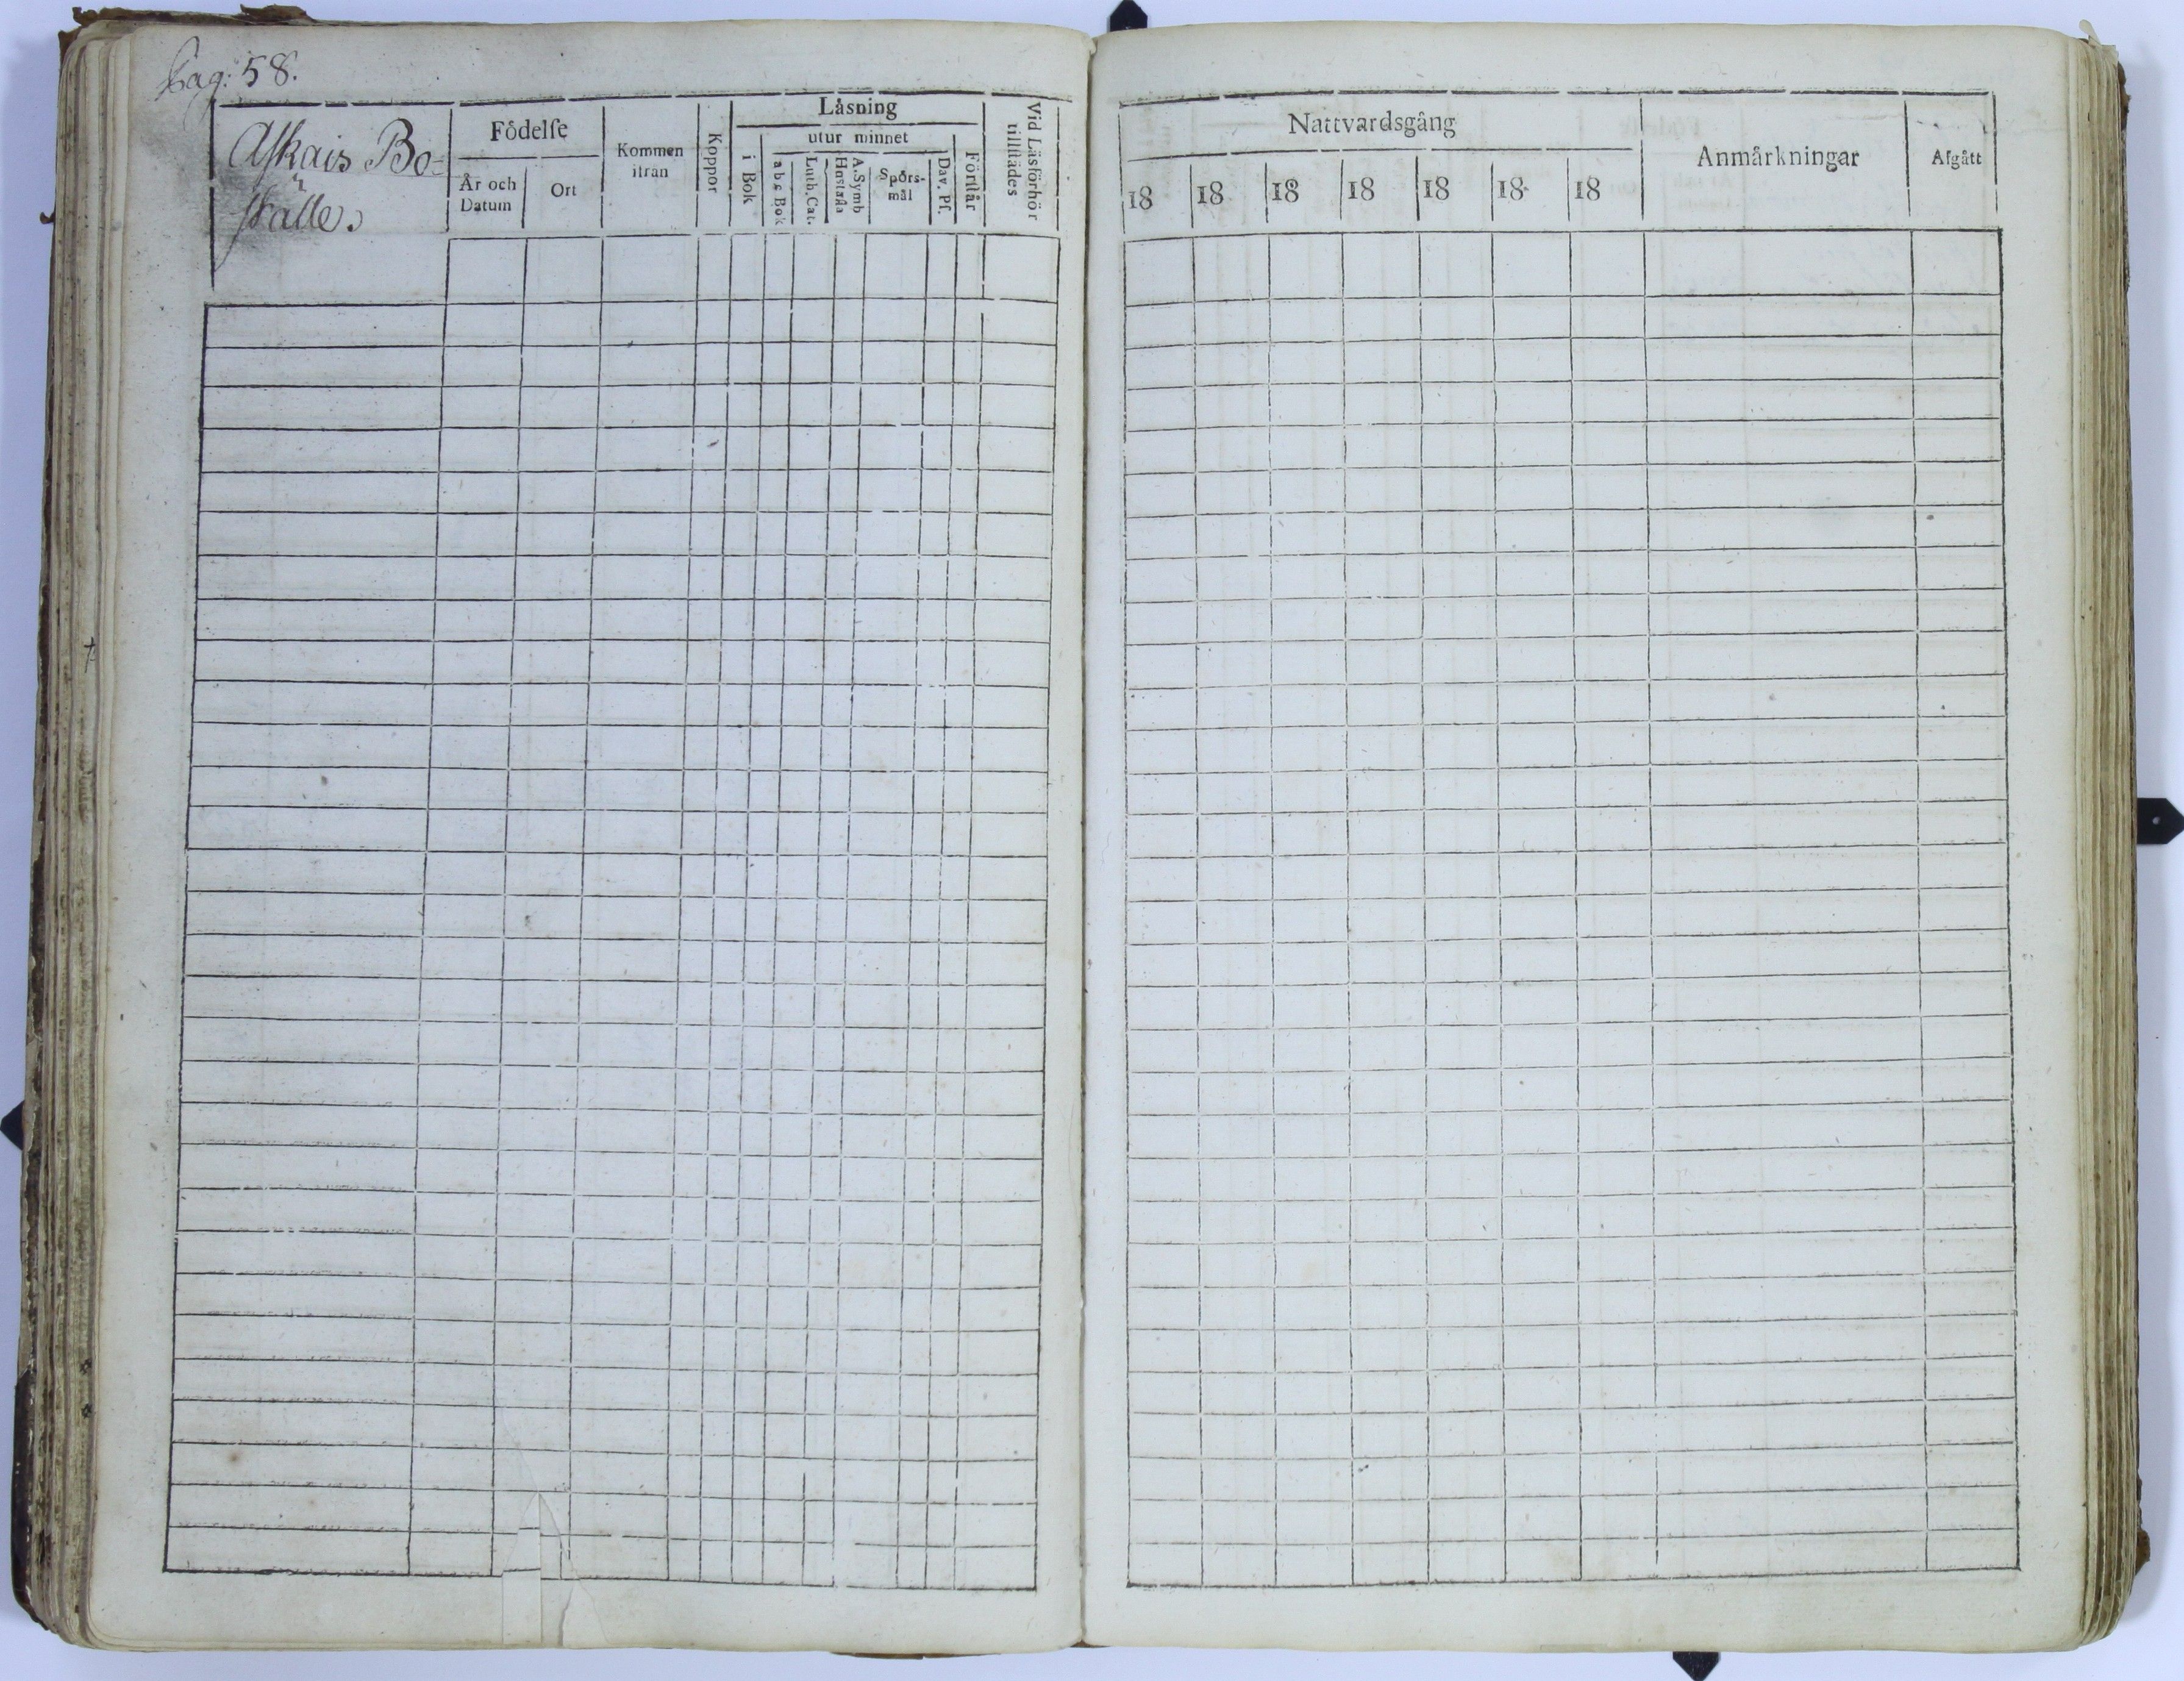 Pag: 58.
Askais Bo-
ställe.
Födelse
År och
Datum
Ort
Kommen
ifrån
Koppor
Läsning
i Bok
utur minnet
abc Bok
Luth. Cat.
A. Symb
Hustafla
Spörs-
mål
Dav. Ps.
Förstår
Vid Läsförhör
tillstädes
Nattvardsgång
18 18 18 18 18 18 18
Anmärkningar
Afgått